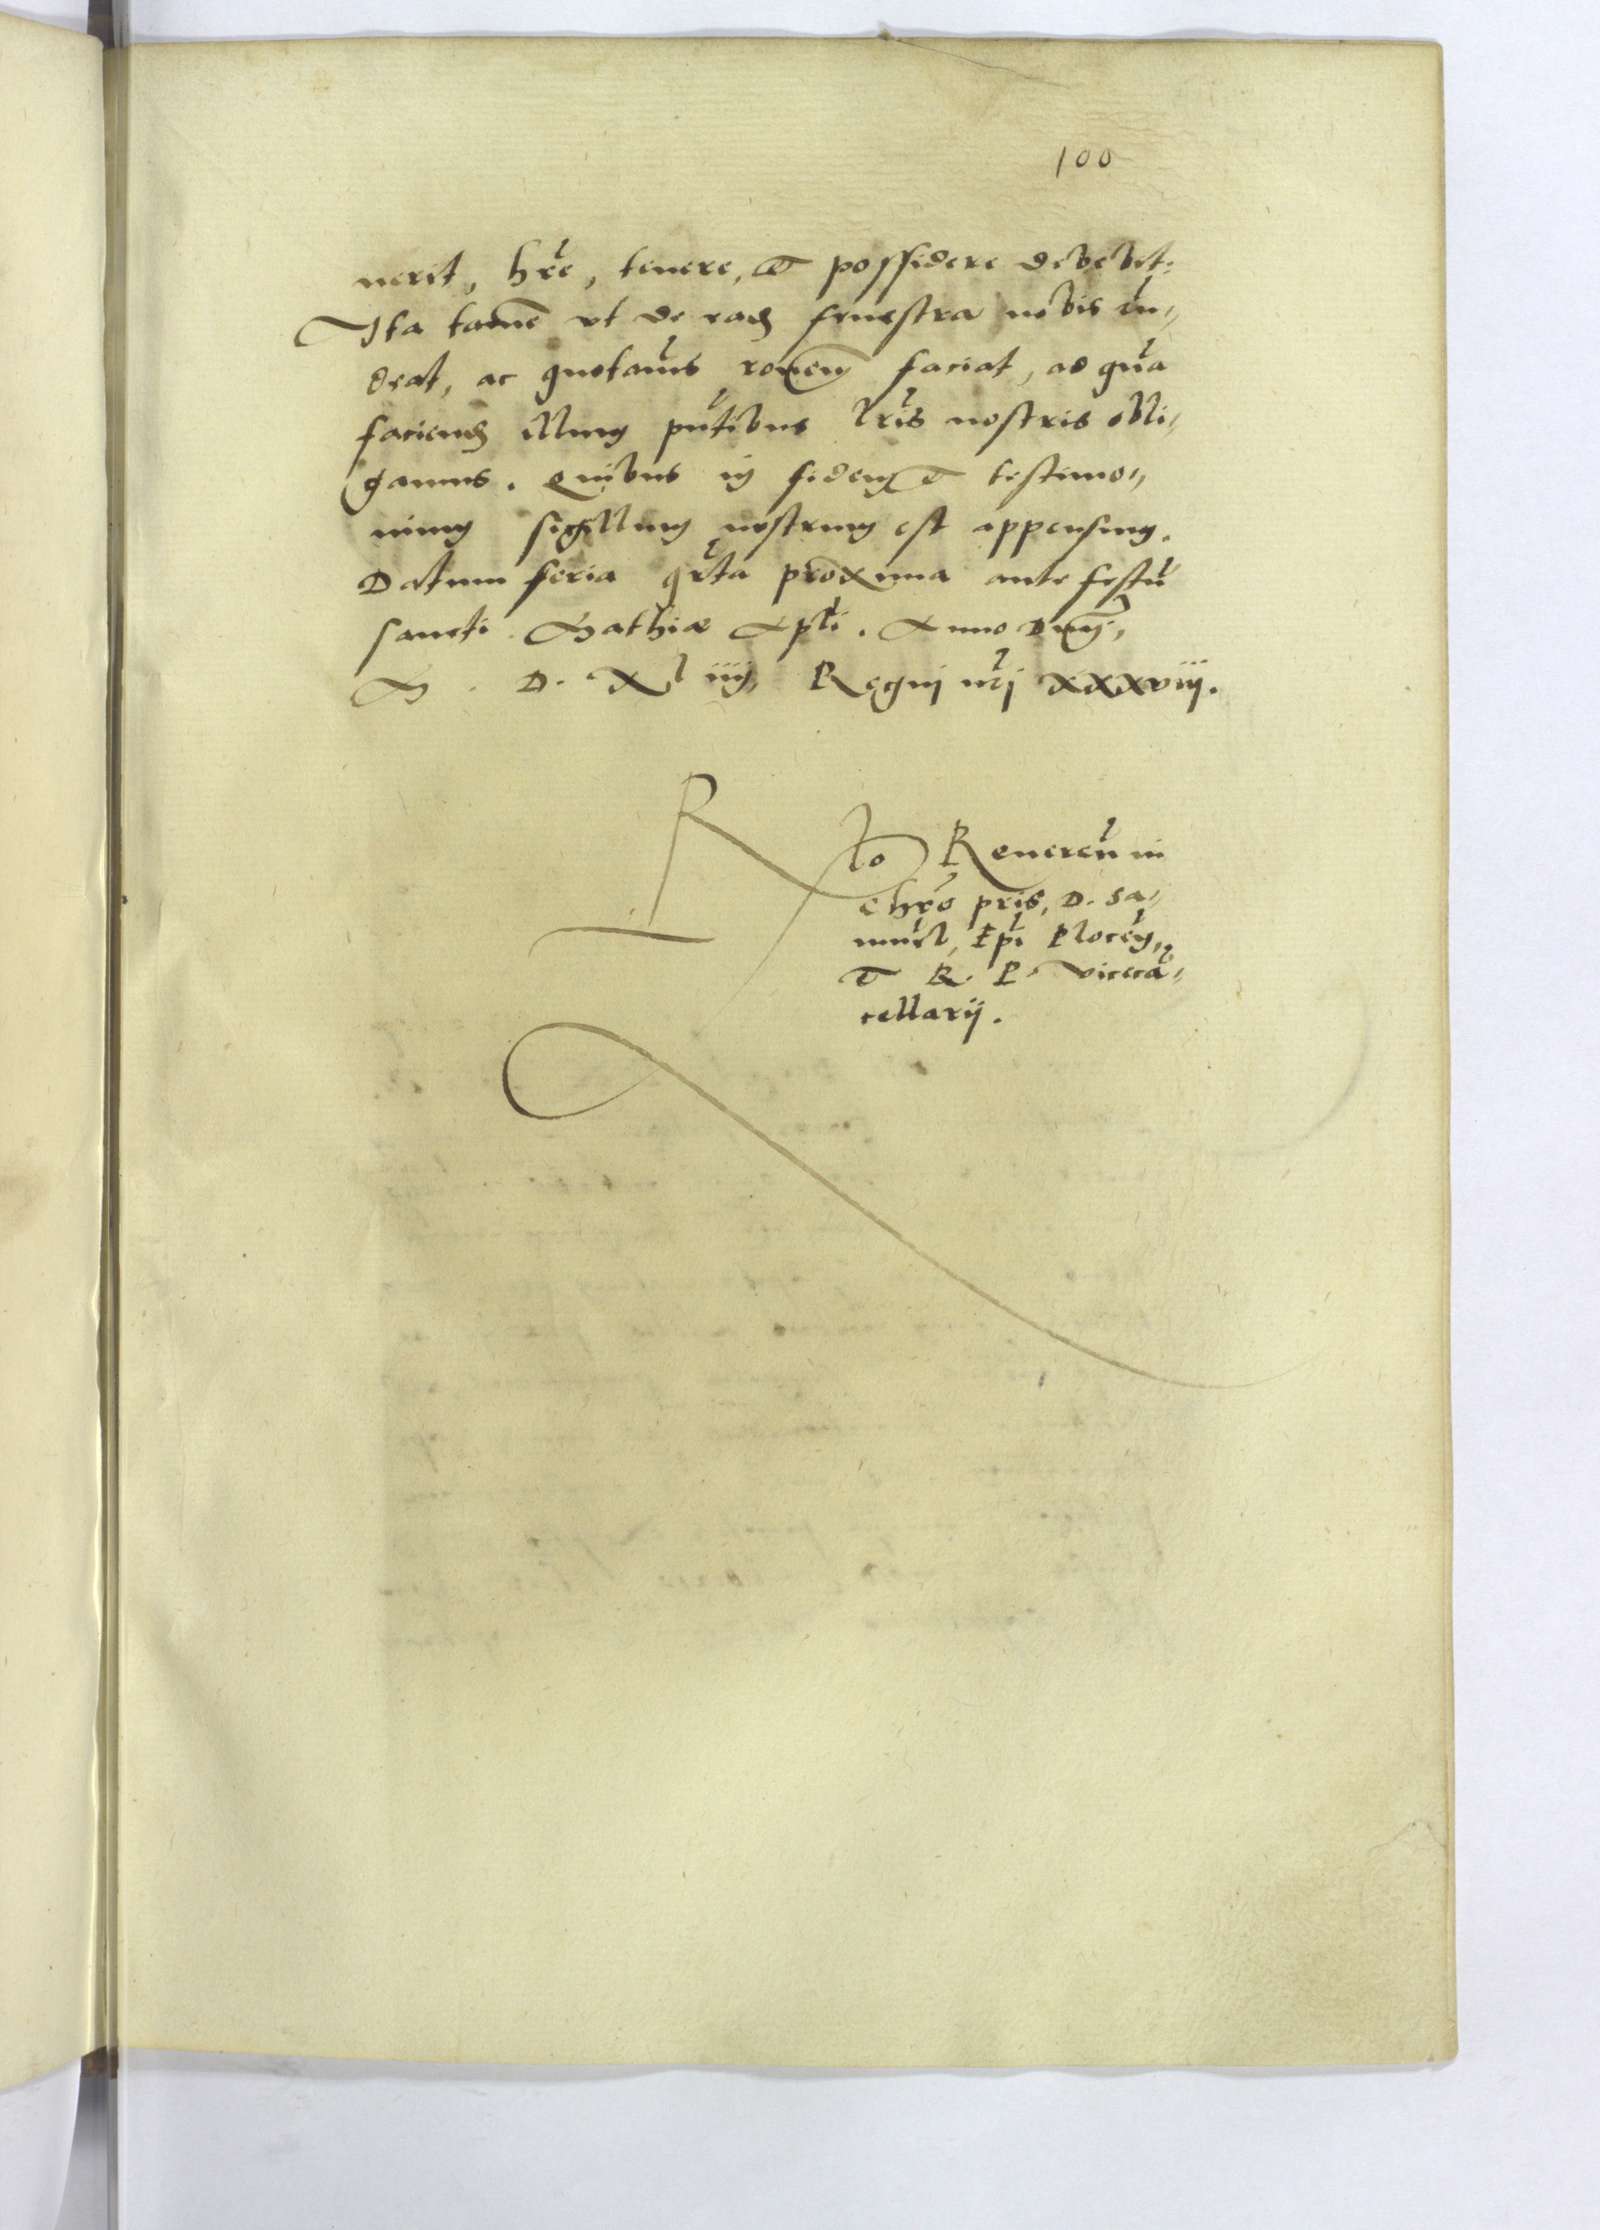 100
nerit, hr̃e, tenere, et possidere debebit.
Ita tamẽ ut de eadẽ fenestra nobis
deat, ac quotañis rõnem faciat, ad quã
faciendã illum pñtibus lr̃is nostris obli„
gamus. Quibus in fidem et testimo„
nium sigillum nostrum est appensum.
Datum feria qr̃ta proxima ante festũ
sancti Mathiæ Apl̃i. Anno Dñj,
M. D. XLiiij, Regnj nr̃j xxxviij.
R̃lo Reuereñ in
chr̃o pr̃is, D. Sa„
muel, Ep̃i Plocẽn,
et R. P. Vicecã„
cellarij.